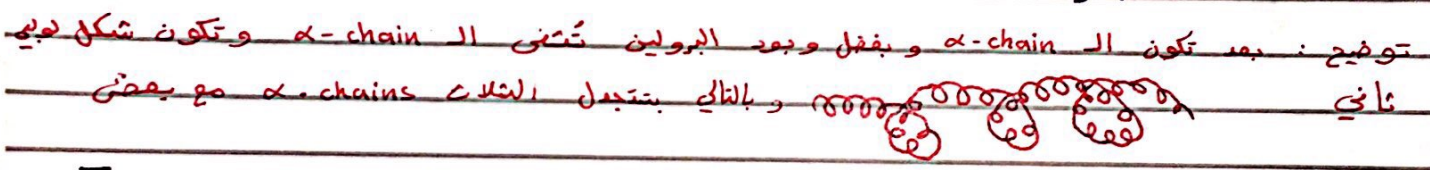 توضيح : بعد تكون الـ α-chain و بفضل وجود البرولين تُثنى الـ α-chain و تكون شكل لولبي
ثاني و بالتالي بتنجدل الثلاث α-chains مع بعض